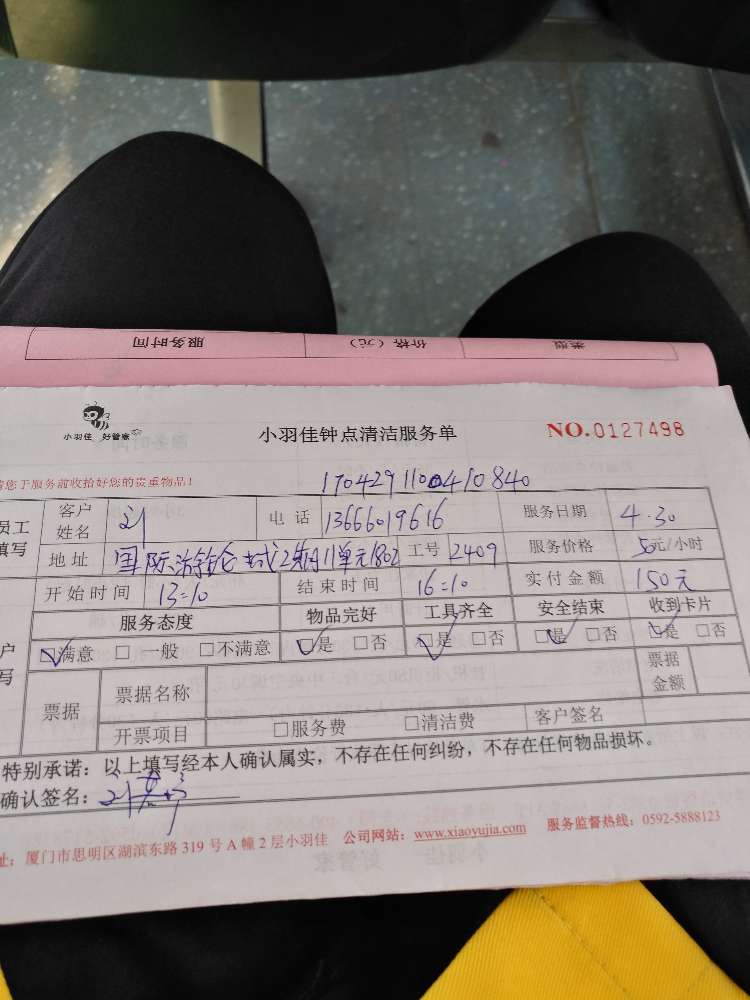 服务时间 价格（元） 类型
小羽佳 好管家 小羽佳钟点清洁服务单 NO.0127498
您于服务前收拾好您的贵重物品！ 170429110410840
员工填写 客户姓名 刘 电话 13666019616 服务日期 4.30
地址 国际游轮城2期11单元1802 工号 2409 服务价格 50元/小时
开始时间 13:10 结束时间 16:10 实付金额 150元
服务态度 物品完好 工具齐全 安全结束 收到卡片
☑满意 □一般 □不满意 ☑是 □否 ☑是 □否 ☑是 □否 ☑是 □否
票据 票据名称 票据金额
开票项目 □服务费 □清洁费 客户签名
特别承诺：以上填写经本人确认属实，不存在任何纠纷，不存在任何物品损坏。
确认签名：刘
址：厦门市思明区湖滨东路 319 号 A 幢 2 层小羽佳 公司网站：www.xiaoyujia.com 服务监督热线：0592-5888123